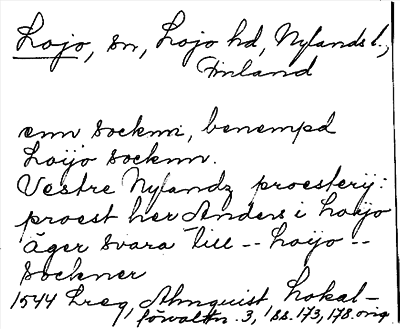 Lojo, sn, Lojo hd, Nylands l.,
Finland
enn socknn, benempd
Loijo socknn.
Vestre Nylandz proesterij:
proest her Anders i Loijo
äger svara till -- Loijo --
sockner
1544 Lreg, Almquist Lokal-
förvaltn. 3, 1 ss. 173, 178. orig